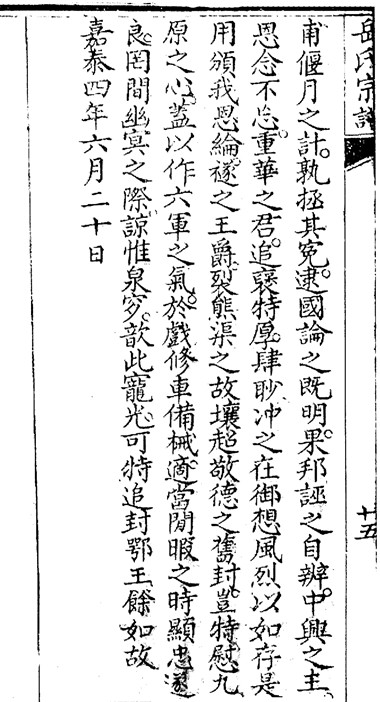 岳氏宗譜
十五
甫偃月之計。孰拯其冤。逮國論之既明。果邦誣之自辯。中興之主。
恩念不忘。重華之君。追褒特厚。肆眇冲之在御想風烈以如存是
用頒我恩綸。襚之王爵裂熊渠之故壤超敬德之舊封。豈特慰九
原之心。蓋以作六軍之氣。於戲修車備械。適當閒暇之時顯忠遂
良。罔間幽冥之際諒惟泉穸。歆此寵光。可特追封鄂王餘如故
嘉泰四年六月二十日